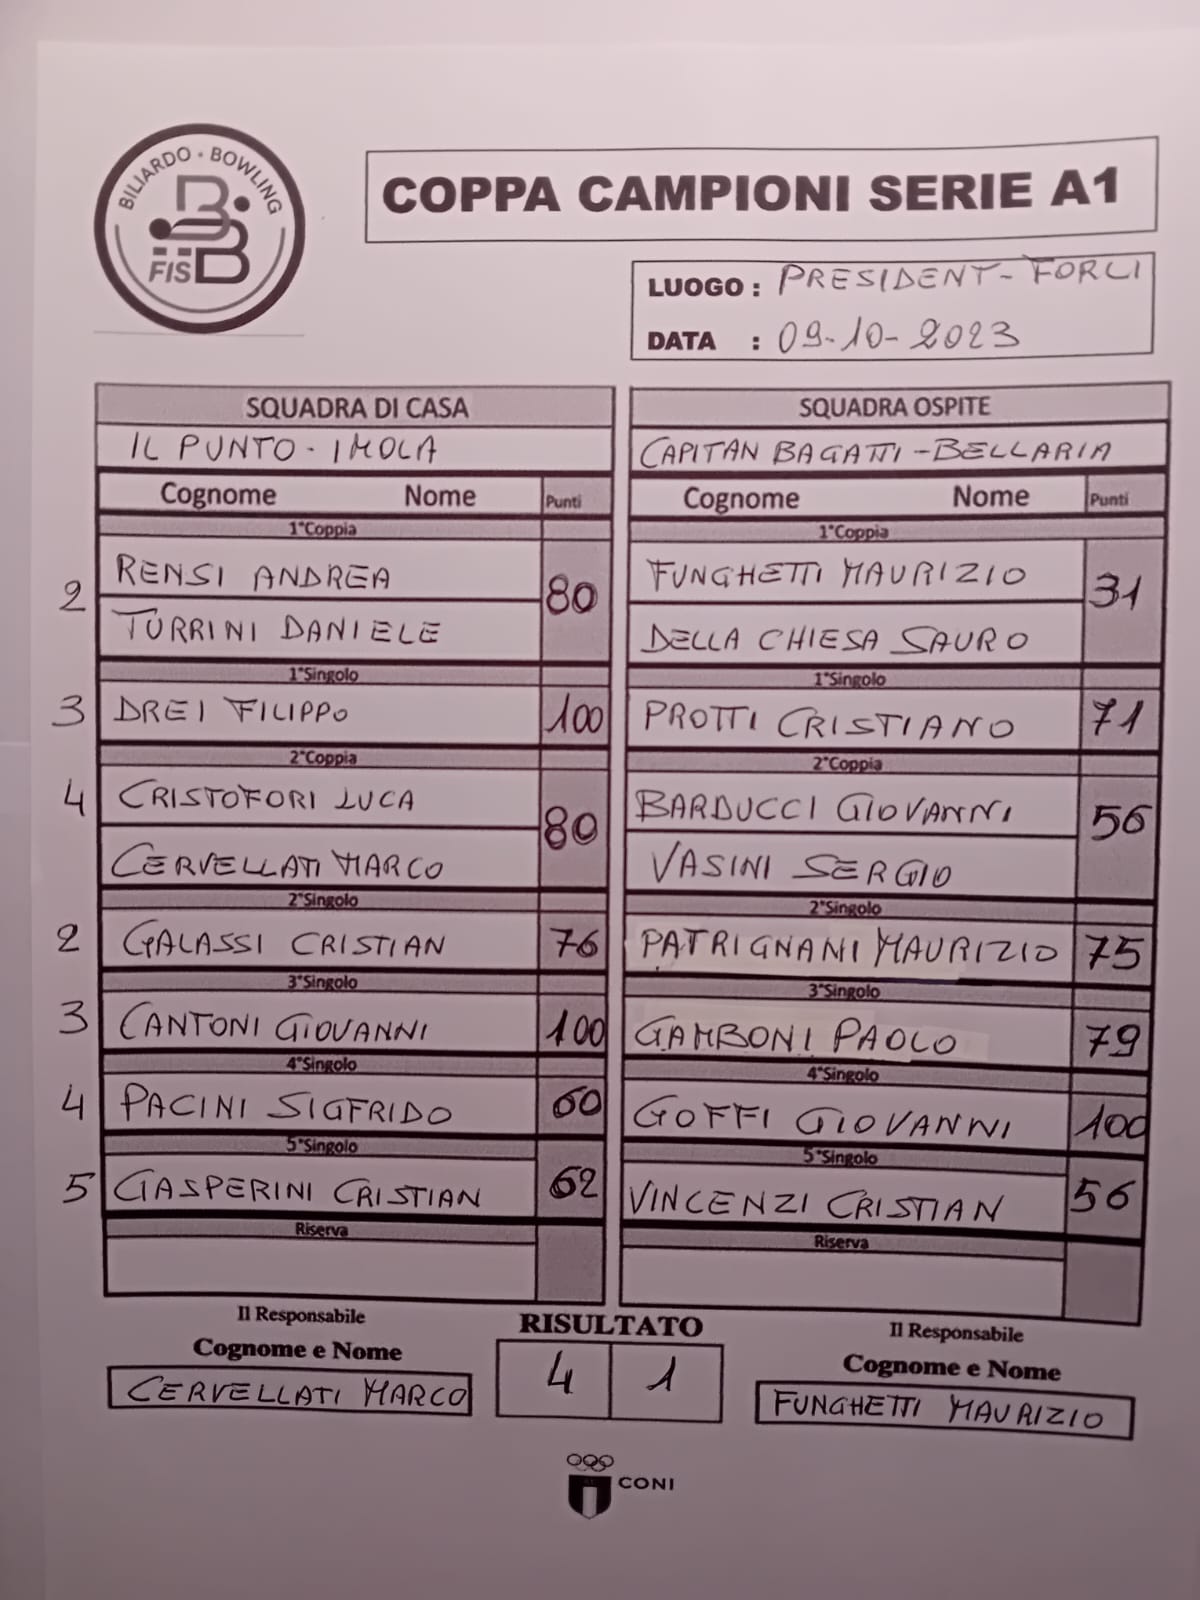 BILIARDO • BOWLING
FISBB
COPPA CAMPIONI SERIE A1
LUOGO : PRESIDENT - FORLI
DATA : 09-10-2023
SQUADRA DI CASA
IL PUNTO - IMOLA
Cognome Nome Punti
1°Coppia
2 RENSI ANDREA 80
TURRINI DANIELE
1°Singolo
3 DREI FILIPPO 100
2°Coppia
4 CRISTOFORI LUCA 80
CERVELLATI MARCO
2°Singolo
2 GALASSI CRISTIAN 76
3°Singolo
3 CANTONI GIOVANNI 100
4°Singolo
4 PACINI SIGFRIDO 60
5°Singolo
5 GASPERINI CRISTIAN 62
Riserva
SQUADRA OSPITE
CAPITAN BAGATTI - BELLARIA
Cognome Nome Punti
1°Coppia
FUNGHETTI MAURIZIO 31
DELLA CHIESA SAURO
1°Singolo
PROTTI CRISTIANO 71
2°Coppia
BARDUCCI GIOVANNI 56
VASINI SERGIO
2°Singolo
PATRIGNANI MAURIZIO 75
3°Singolo
GAMBONI PAOLO 79
4°Singolo
GOFFI GIOVANNI 100
5°Singolo
VINCENZI CRISTIAN 56
Riserva
Il Responsabile
Cognome e Nome
CERVELLATI MARCO
RISULTATO
4 1
Il Responsabile
Cognome e Nome
FUNGHETTI MAURIZIO
CONI